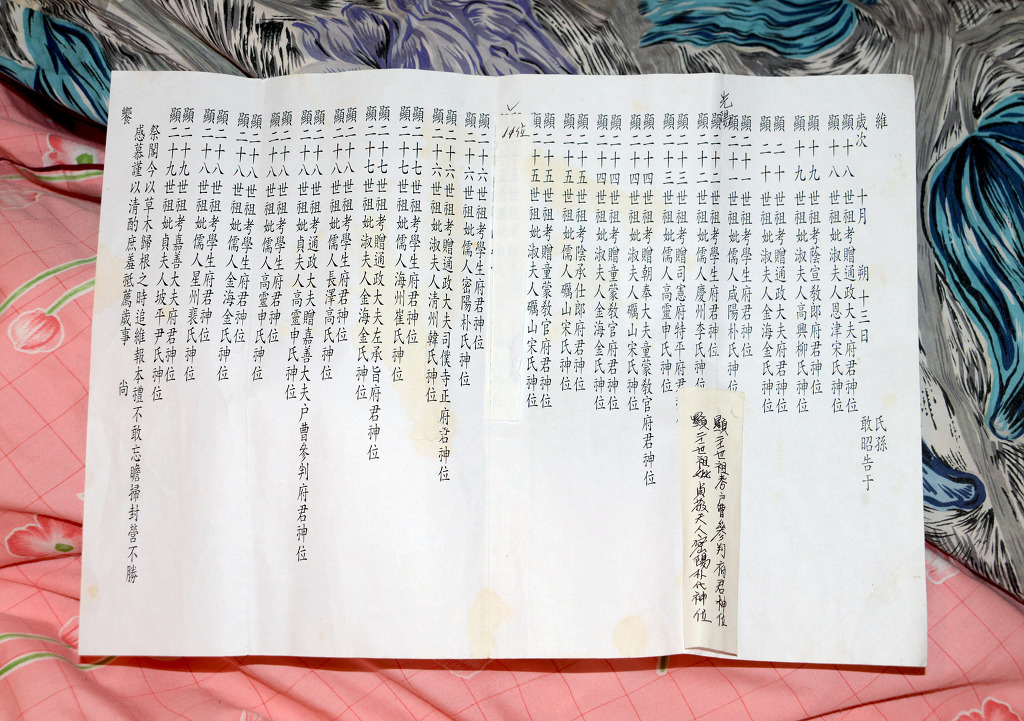 維
歲次 十月 朔十三日 氏孫
敢昭告于
顯十八世祖考贈通政大夫府君神位
顯十八世祖妣淑夫人恩津宋氏神位
顯十九世祖考蔭宣敎郎府君神位
顯十九世祖妣淑夫人高興柳氏神位
顯二十世祖考贈通政大夫府君神位
顯二十世祖妣淑夫人金海金氏神位
顯二十一世祖考學生府君神位
顯二十一世祖妣儒人咸陽朴氏神位
顯二十二世祖考學生府君神位
顯二十二世祖妣儒人慶州李氏神位
顯二十三世祖考贈司憲府特平府君
顯二十三世祖妣儒人高靈申氏神位
顯二十四世祖考贈朝奉大夫童蒙敎官府君神位
顯二十四世祖妣淑夫人礪山宋氏神位
顯二十四世祖考贈童蒙敎官府君神位
顯二十四世祖妣淑夫人金海金氏神位
顯二十五世祖考陰承仕郎府君神位
顯二十五世祖妣儒人礪山宋氏神位
顯二十五世祖考贈童蒙敎官府君神位
顯二十五世祖妣淑夫人礪山宋氏神位
14位
顯二十六世祖考學生府君神位
顯二十六世祖妣儒人密陽朴氏神位
顯二十六世祖考贈通政大夫司僕寺正府君神位
顯二十六世祖妣淑夫人清州韓氏神位
顯二十七世祖考學生府君神位
顯二十七世祖妣儒人海州崔氏神位
顯二十七世祖考贈通政大夫左承旨府君神位
顯二十七世祖妣淑夫人金海金氏神位
顯二十八世祖考學生府君神位
顯二十八世祖妣儒人長澤高氏神位
顯二十八世祖考通政大夫贈嘉善大夫户曹參判府君神位
顯二十八世祖妣貞夫人高靈申氏神位
顯二十八世祖考學生府君神位
顯二十八世祖妣儒人高靈申氏神位
顯二十八世祖考學生府君神位
顯二十八世祖妣儒人金海金氏神位
顯二十八世祖考學生府君神位
顯二十八世祖妣儒人星州裴氏神位
顯二十九世祖考嘉善大夫府君神位
顯二十九世祖妣貞夫人坡平尹氏神位
祭閣今以草木歸根之時追維報本禮不敢忘瞻掃封瑩不勝
感慕謹以清酌庶羞祗薦歲事 尚
饗
顯 世祖考户曹參判府君神位
顯 世祖妣貞敬夫人密陽朴氏神位